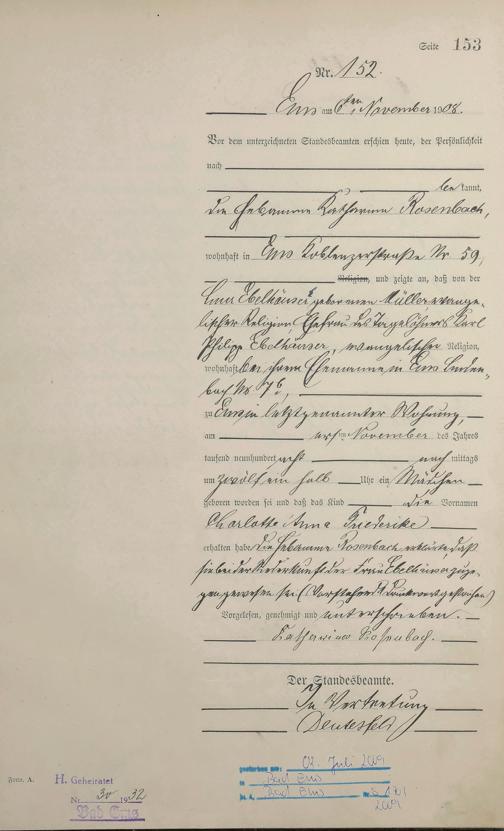 Seite 153
Nr. 152.
Ems am 6ten November 1908.
Vor dem unterzeichneten Standesbeamten erschien heute, der Persönlichkeit
nach
bekannt,
die Hebamme Katharina Rosenbach,
wohnhaft in Ems Koblenzerstraße Nr 59,
Religion, und zeigte an, daß von der
Lina Ebelhäuser geborenen Müller evange-
lischer Religion, Ehefrau des Tagelöhners Karl
Philipp Ebelhäuser, evangelischer Religion,
wohnhaft bei ihrem Ehemanne in Ems Linden-
bach Nr 7b,
zu Ems, in letztgenannter Wohnung,
am ersten November des Jahres
tausend neunhundert acht nach mittags
um zwölf ein halb Uhr ein Mädchen
geboren worden sei und daß das Kind die Vornamen
Charlotte Anna Friederike
erhalten habe. Die Hebamme Rosenbach erklärte daß
sie bei der Niederkunft der Frau Ebelhäuser zuge-
gen gewesen sei. (Vorstehend Druckwort gestrichen)
Vorgelesen, genehmigt und unterschrieben.
Katharina Rosenbach.
Der Standesbeamte.
In Vertretung
Form. A.
H. Geheiratet
Nr. 30 1932
Bad Ems
gestorben am: 02. Juli 2009
in Bad Ems
St. A. Bad Ems
2009